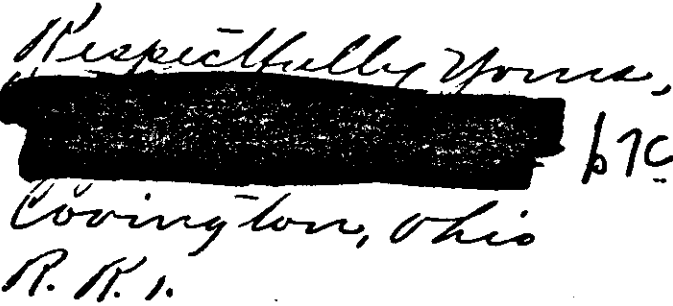 Respectfully Yours,
b7C
Covington, Ohio
R. R. 1.